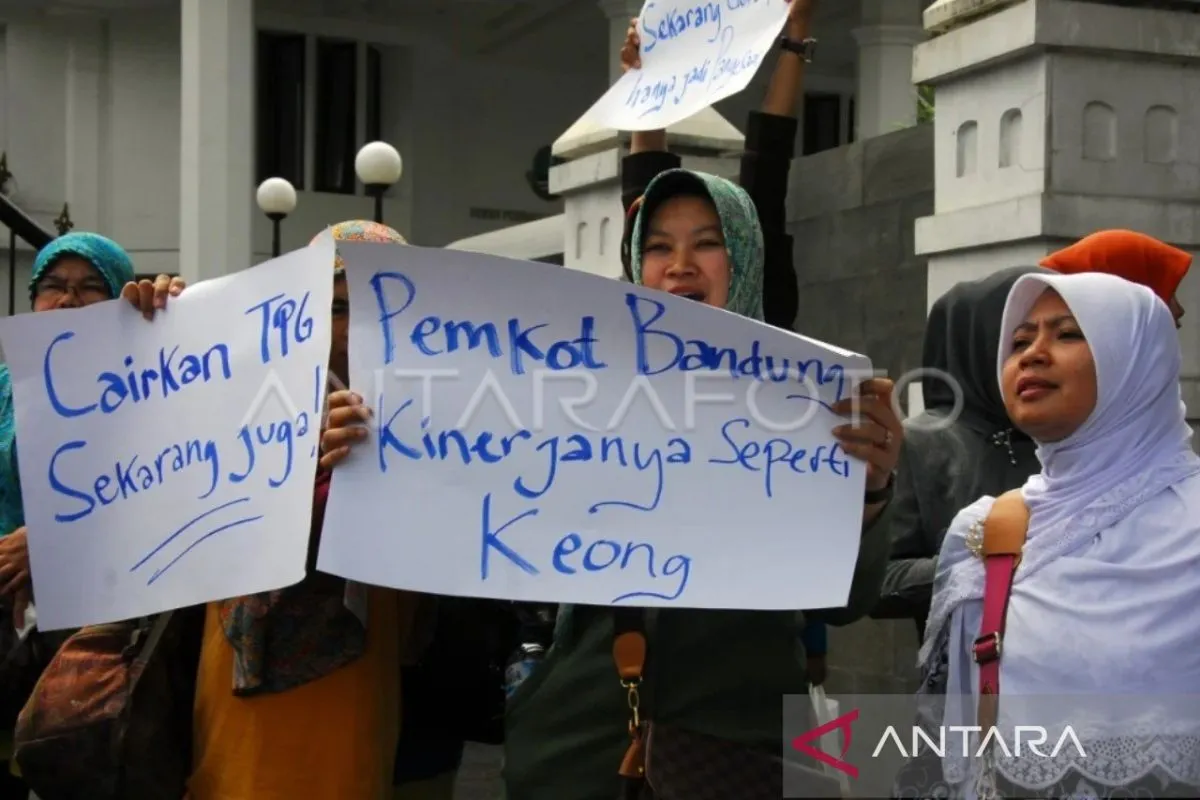 Sekarang
hanya jadi
Cairkan TPG
Sekarang juga!
Pemkot Bandung
Kinerjanya Seperti
Keong
ANTARAFOTO
ANTARA